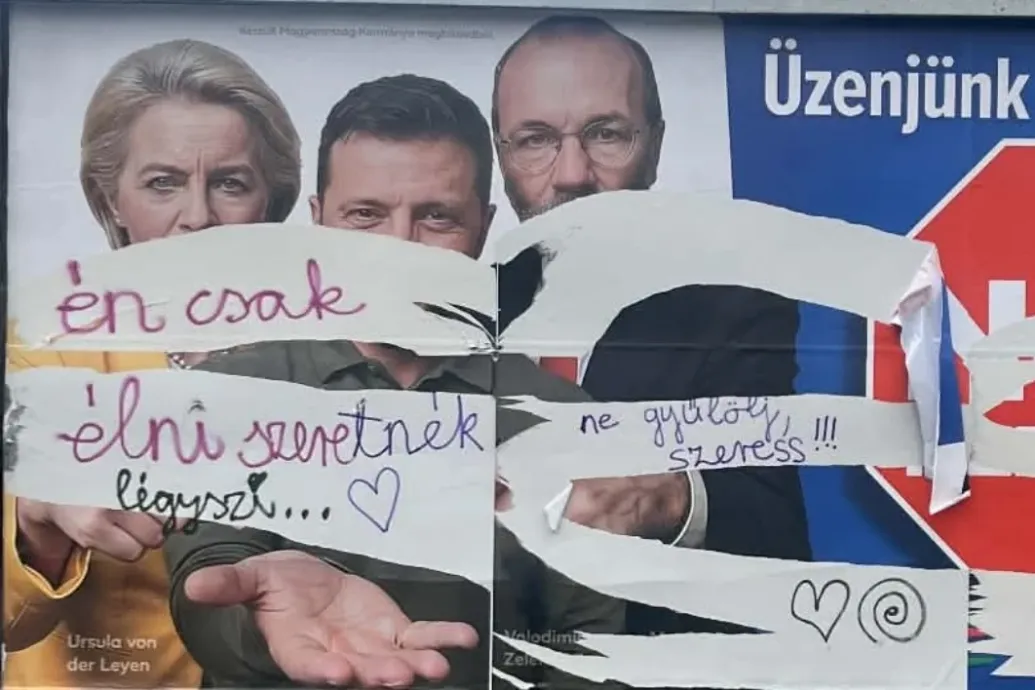 Készült Magyarország Kormánya megbízásából
Üzenjünk
én csak
élni szeretnék
légyszi... ♡
ne gyűlölj,
szeress !!!
Ursula von
der Leyen